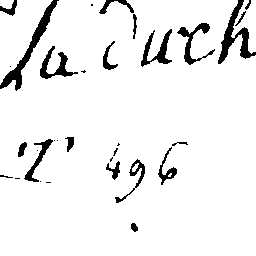 La duch
T 496